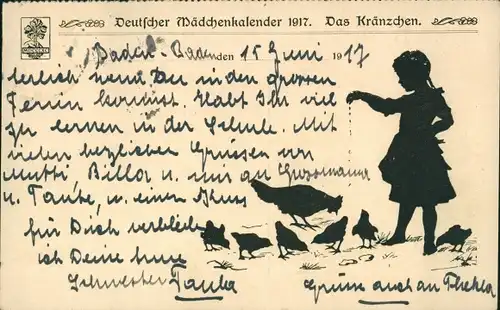 Deutscher Mädchenkalender 1917. Das Kränzchen.
Baden-Baden den 15 Juni 1917
wenn Du in den grossen
Ferien kommst. Habt Ihr viel
zu lernen in der Schule. Mit
vielen herzlichen Grüssen von
Mutti, Billa u. mir an Grossmama
u. Tante, u. einen Kuss
für Dich verbleibe
ich Deine treue
Schwester
Grüsse auch an Thekla